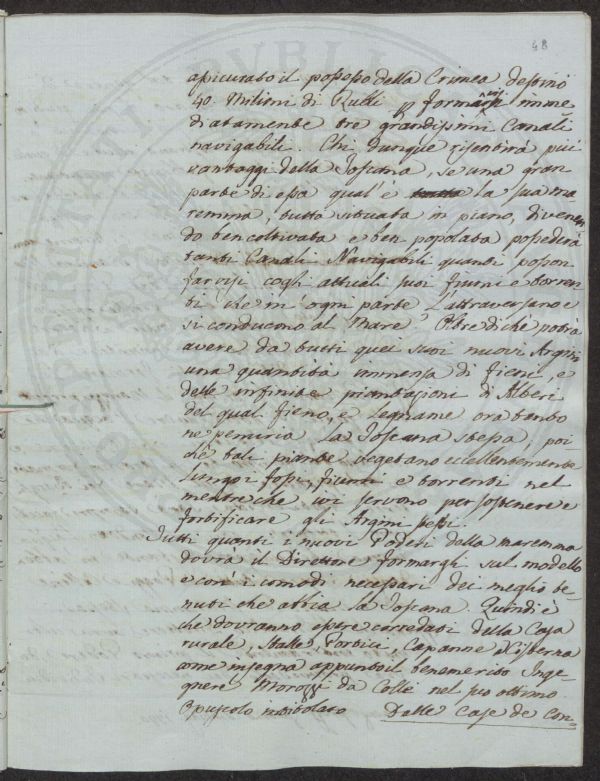 48
assicurato il possesso della Crimea destinò
40. Milioni di Rubli per formarvi imme
diatamente tre grandissimi Canali
navigabili. Chi dunque risentirà più
vantaggi della Toscana, se una gran
parte di essa qual'è la sua ma
remma, tutta situata in piano, divenen
do ben coltivata e ben popolata possederà
tanti Canali Navigabili quanti posson
farvisi cogli attuali suoi fiumi e torren
ti che in ogni parte l'attraversano e
si conducono al Mare. Oltre di che potrà
avere da tutti quei suoi nuovi Argini
una quantità immensa di fieni, e
delle infinite piantazioni di Alberi
del qual fieno, e legname ora tanto
ne penuria la Toscana stessa, poi
chè tali piante vegetano eccellentemente
lungo i fossi, fiumi e torrenti nel
mentre che ivi servono per sostenere e
fortificare gli Argini stessi.
Tutti quanti i nuovi Poderi della maremma
dovrà il Direttore formargli sul modello
e con i comodi necessari dei meglio te
nuti che abbia la Toscana. Quindi è
che dovranno essere corredati della Casa
rurale, Stalle, Forbici, Capanne e Cisterna
come insegna appunto il benemerito Inge
gnere Morozzi da Colle nel suo ottimo
Opuscolo intitolato Delle Case de Con=